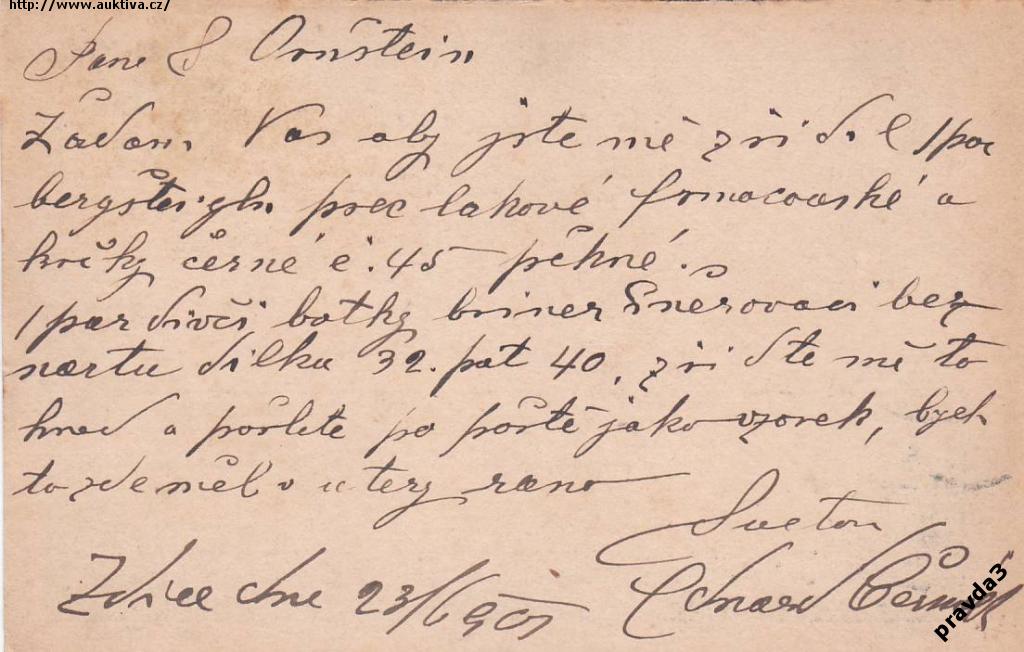 http://www.auktiva.cz/
Pane S Ornštein
Žádám Vas aby jste mě zřidil 1 par
prec lakové a
kvičky černé č. 45 pěkné.
1 par divči botky briner šněrovaci bez
nartu dilku 32. pat 40, zřidte mě to
hned a pošlete po poště jako vzorek, bych
to zde měl v utery rano
S uctou
Zdice dne 23/6 905 Edvard
pravda3